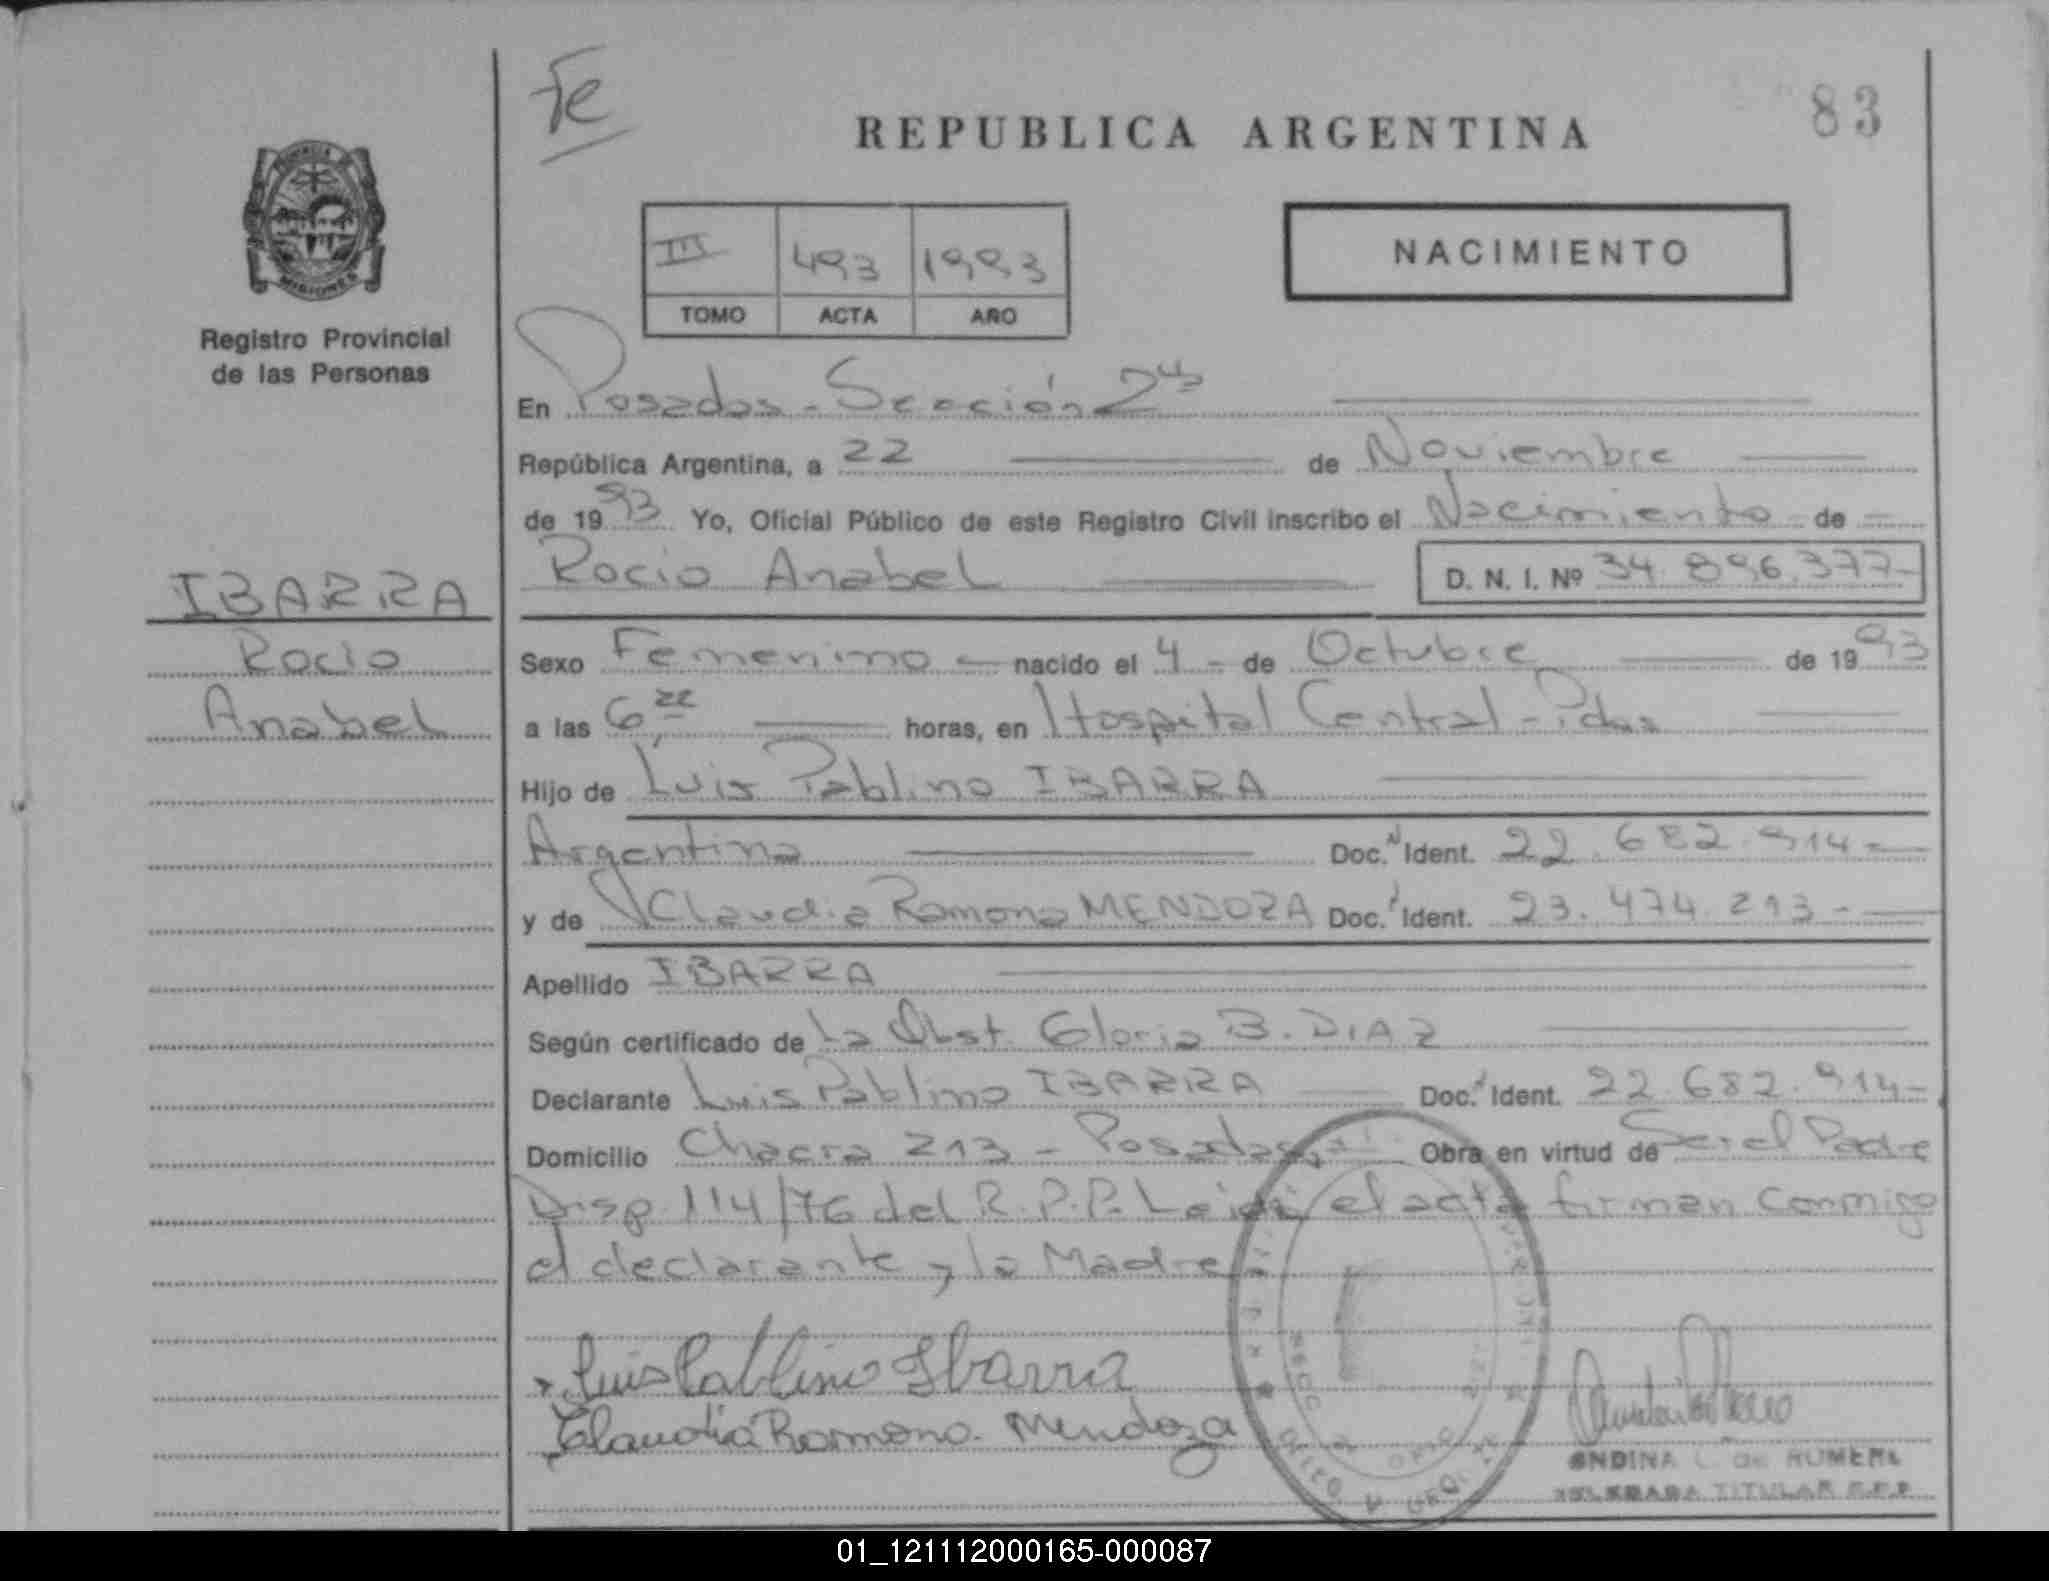 Fe
83
REPUBLICA ARGENTINA
MISIONES
Registro Provincial
de las Personas
III 493 1993
TOMO ACTA AÑO
NACIMIENTO
En Posadas - Sección 2
República Argentina, a 22 de Noviembre
de 1993 Yo, Oficial Público de este Registro Civil inscribo el Nacimiento de
Rocio Anabel D. N. I. Nº 34.896.377-
IBARRA
Rocio
Anabel
Sexo Femenino nacido el 4 - de Octubre de 1993
a las 6 horas, en Hospital Central - Pdas
Hijo de Luis Pablino IBARRA
Argentina Doc. Ident. 22.682.914-
y de Claudia Ramona MENDOZA Doc. Ident. 23.474.213-
Apellido IBARRA
Según certificado de La Obst. Gloria B. DIAZ
Declarante Luis Pablino IBARRA Doc. Ident. 22.682.914-
Domicilio Chacra 213 - Posadas Obra en virtud de Ser el Padre
Disp. 114/76 del R.P.P. Leída el acta firman conmigo
el declarante y la Madre
Luis Pablino Ibarra
Claudia Ramona Mendoza
TITULAR
01_121112000165-000087